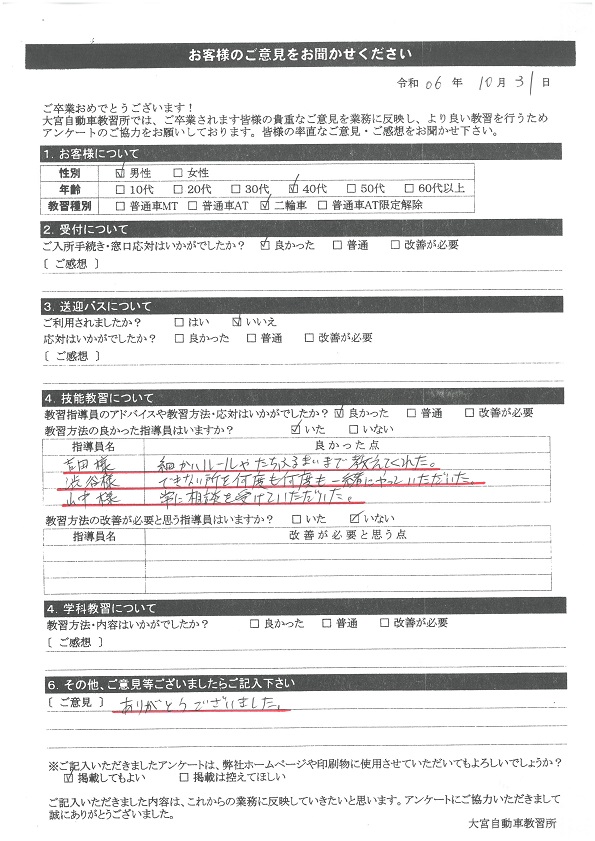 お客様のご意見をお聞かせください
令和 06 年 10 月 31 日
ご卒業おめでとうございます！
大宮自動車教習所では、ご卒業されます皆様の貴重なご意見を業務に反映し、より良い教習を行うため
アンケートのご協力をお願いしております。皆様の率直なご意見・ご感想をお聞かせ下さい。
1. お客様について
性別 ☑ 男性 □ 女性
年齢 □ 10代 □ 20代 □ 30代 ☑ 40代 □ 50代 □ 60代以上
教習種別 □ 普通車MT □ 普通車AT ☑ 二輪車 □ 普通車AT限定解除
2. 受付について
ご入所手続き・窓口応対はいかがでしたか？ ☑ 良かった □ 普通 □ 改善が必要
〔 ご感想 〕
3. 送迎バスについて
ご利用されましたか？ □ はい ☑ いいえ
応対はいかがでしたか？ □ 良かった □ 普通 □ 改善が必要
〔 ご感想 〕
4. 技能教習について
教習指導員のアドバイスや教習方法・応対はいかがでしたか？ ☑ 良かった □ 普通 □ 改善が必要
教習方法の良かった指導員はいますか？ ☑ いた □ いない
指導員名 良かった点
吉田様 細かいルールやたちふるまいまで教えてくれた。
渋谷様 できない所を何度も何度も一緒にやっていただいた。
山中様 常に相談を受けていただいた。
教習方法の改善が必要と思う指導員はいますか？ □ いた ☑ いない
指導員名 改善が必要と思う点
4. 学科教習について
教習方法・内容はいかがでしたか？ □ 良かった □ 普通 □ 改善が必要
〔 ご感想 〕
6. その他、ご意見等ございましたらご記入下さい
〔 ご意見 〕 ありがとうございました。
※ご記入いただきましたアンケートは、弊社ホームページや印刷物に使用させていただいてもよろしいでしょうか？
☑ 掲載してもよい □ 掲載は控えてほしい
ご記入いただきました内容は、これからの業務に反映していきたいと思います。アンケートにご協力いただきまして
誠にありがとうございました。
大宮自動車教習所